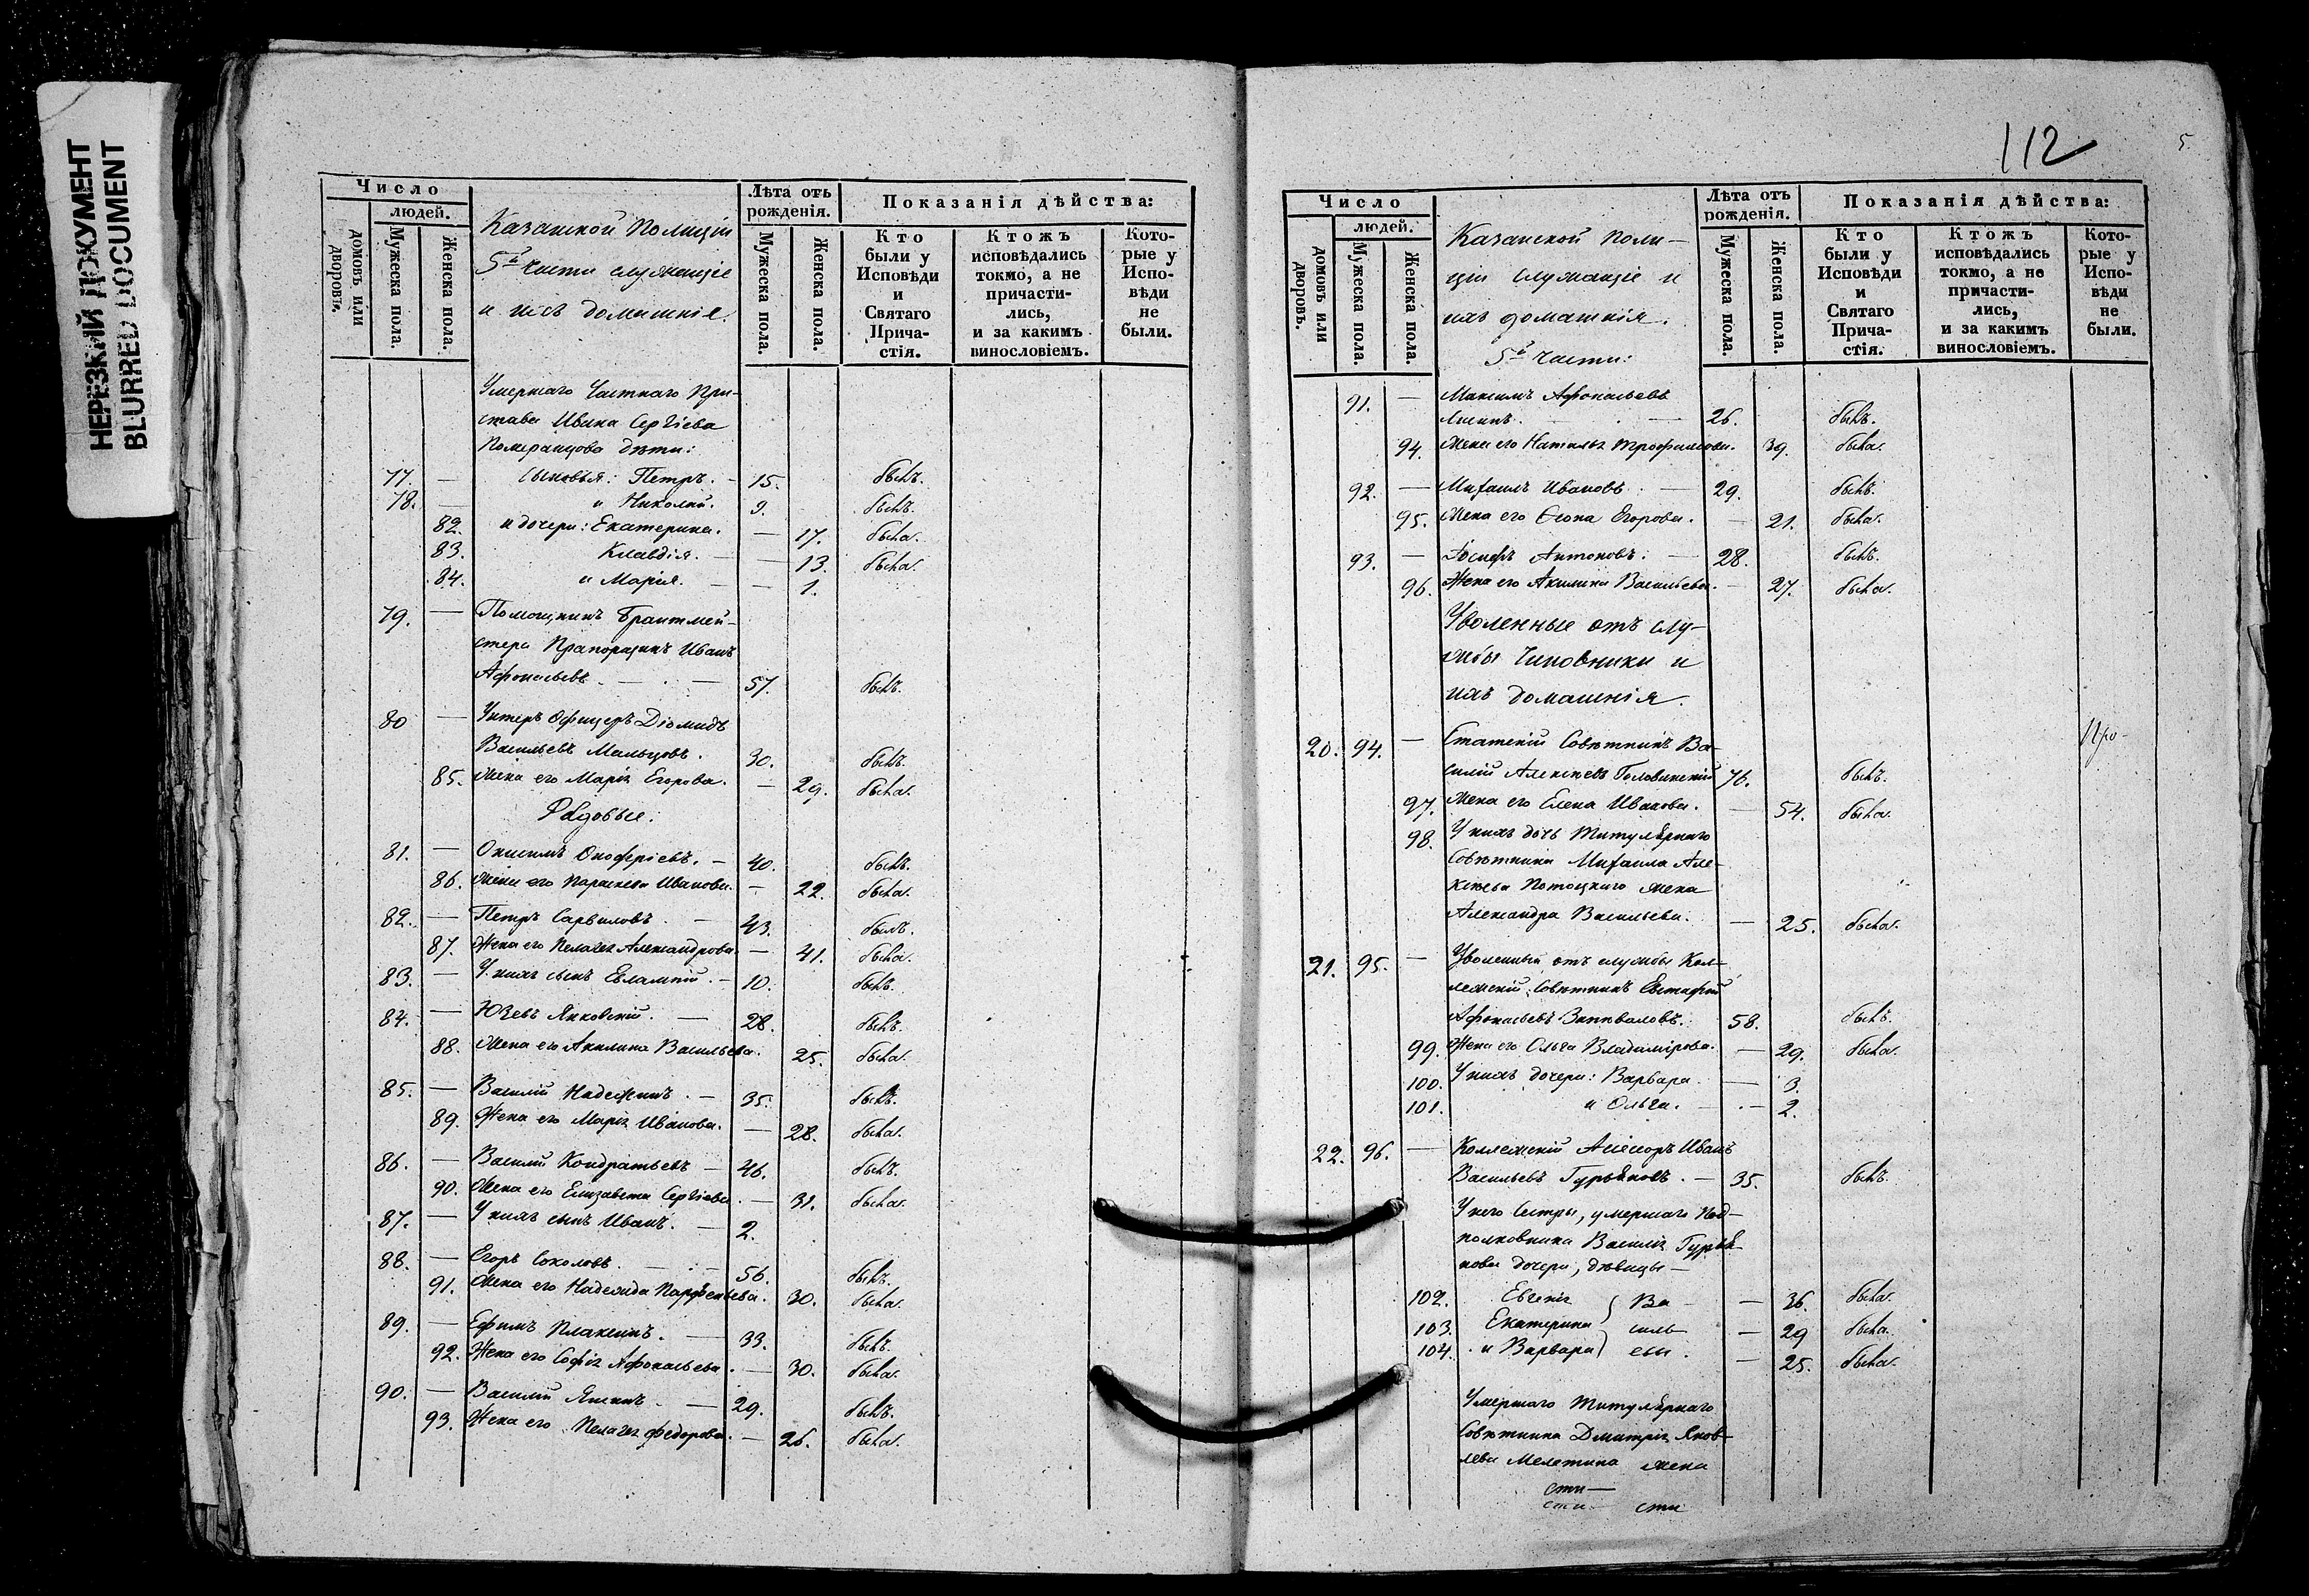 НЕРЕЗКИЙ ДОКУМЕНТ
BLURRED DOCUMENT
Число
людей.
домовъ или дворовъ.
Мужеска пола.
Женска пола.
Казанской Полиціи
5й части служащіе
и ихъ домашнія.
Лѣта отъ
рожденія.
Мужеска пола.
Женска пола.
Показанія дѣйства:
Кто
были у
Исповѣди
и
Святаго
Прича-
стія.
Ктожъ
исповѣдались
токмо, а не
причасти-
лись,
и за какимъ
винословіемъ.
Кото-
рые у
Испо-
вѣди
не
были.
Умершаго Частнаго При-
става Ивана Сергіева
Померанцова дѣти:
77. — Сыновья: Петръ. — 15. былъ.
78. — и Николай. 9. былъ.
82. и дочери: Екатерина. — 17. была.
83. Клавдія. — 13. была.
84. и Марія. — — 1.
79. — Помощникъ Брантмей-
стера Прапорщикъ Иванъ
Афонасьевъ. — — 57. былъ.
80 — Унтеръ Офицеръ Діомидъ
Васильевъ Мальцовъ. 30. былъ.
85. Жена его Марія Егорова. — 29. была.
Рядовые:
81. — Онисимъ Оноферіевъ. — 40. былъ.
86. Жена его Параскева Иванова. — 22. была.
82. — Петръ Сарвиловъ. — 43. былъ.
87. Жена его Пелагея Александрова. — 41. была.
83. — У нихъ сынъ Евлампій. — 10. былъ.
84. — Юзевъ Янковскій. — 28. былъ.
88. Жена его Акилина Васильева. 25. была.
85. — Василій Надежинъ. — 35. былъ.
89. Жена его Марія Иванова. — 28. была.
86. — Василій Кондратьевъ — 46. былъ.
90. Жена его Елизавета Сергіева. — 31. была.
87. — У нихъ сынъ Иванъ. — 2.
88. — Егоръ Соколовъ. — 56. былъ.
91. Жена его Надежда Парфеньева. 30. была.
89. — Ефимъ Плаксинъ. — 33. былъ.
92. Жена его Софія Афонасьева. — 30. была.
90. — Василій Яшинъ. — 29. былъ.
93. Жена его Пелагея Федорова. — 26. была.
112
5
Число
людей.
домовъ или дворовъ.
Мужеска пола.
Женска пола.
Казанской Поли-
ціи служащіе и
ихъ домашнія.
5й части:
Лѣта отъ
рожденія.
Мужеска пола.
Женска пола.
Показанія дѣйства:
Кто
были у
Исповѣди
и
Святаго
Прича-
стія.
Ктожъ
исповѣдались
токмо, а не
причасти-
лись,
и за какимъ
винословіемъ.
Кото-
рые у
Испо-
вѣди
не
были.
91. — Максимъ Афонасьевъ
26. былъ.
94. Жена его Наталья Трофимова. 39. была.
92. — Михаилъ Ивановъ. — 29. былъ.
95. Жена его Егорова. — 21. была.
93. — Іосифъ Антоновъ. — 28. былъ.
96. Жена его Акилина Васильева. — 27. была.
Уволенные отъ слу-
жбы Чиновники и
ихъ домашнія.
20. 94. — Статскій Совѣтникъ Ва-
силій Алексѣевъ Головинскій 76. былъ.
97. Жена его Елена Иванова. — 54. была.
98. У нихъ дочь Титулярнаго
Совѣтника Михаила Але-
ксѣева Потоцкаго жена
Александра Васильева. — 25. была.
21. 95. — Уволенный отъ службы Кол-
лежскій Совѣтникъ Евстафій
Афонасьевъ 58. былъ.
99. Жена его Ольга Владимірова. — 29. была.
100. У нихъ дочери: Варвара. — 3.
101. и Ольга. — — 2.
22. 96. — Коллежскій Асессоръ Иванъ
Васильевъ Гурьяновъ. — 35. былъ.
У него Сестры, умершаго Под-
полковника Василія Гурья-
нова дочери, дѣвицы —
102. Евгенія } Ва — — 36. была.
103. Екатерина силь — 29 была.
104. и Варвара } евы. — 25. была.
Умершаго Титулярнаго
Совѣтника Дмитрія Яков-
лева Мелетина жена
сти —
сти
Про-